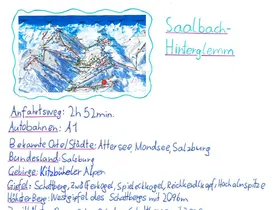 Saalbach-
Hinterglemm
Anfahrtsweg: 2h 52min.
Autobahnen: A1
Bekannte Orte/Städte: Attersee, Mondsee, Salzburg
Bundesland: Salzburg
Gebirge: Kitzbüheler Alpen
Gipfel: Schattberg, Zwölferkogel, Spieleckkogel, Reichkendlkopf, Hochalmspitze
Höchster Berg: Westgipfel des Schattbergs mit 2096m